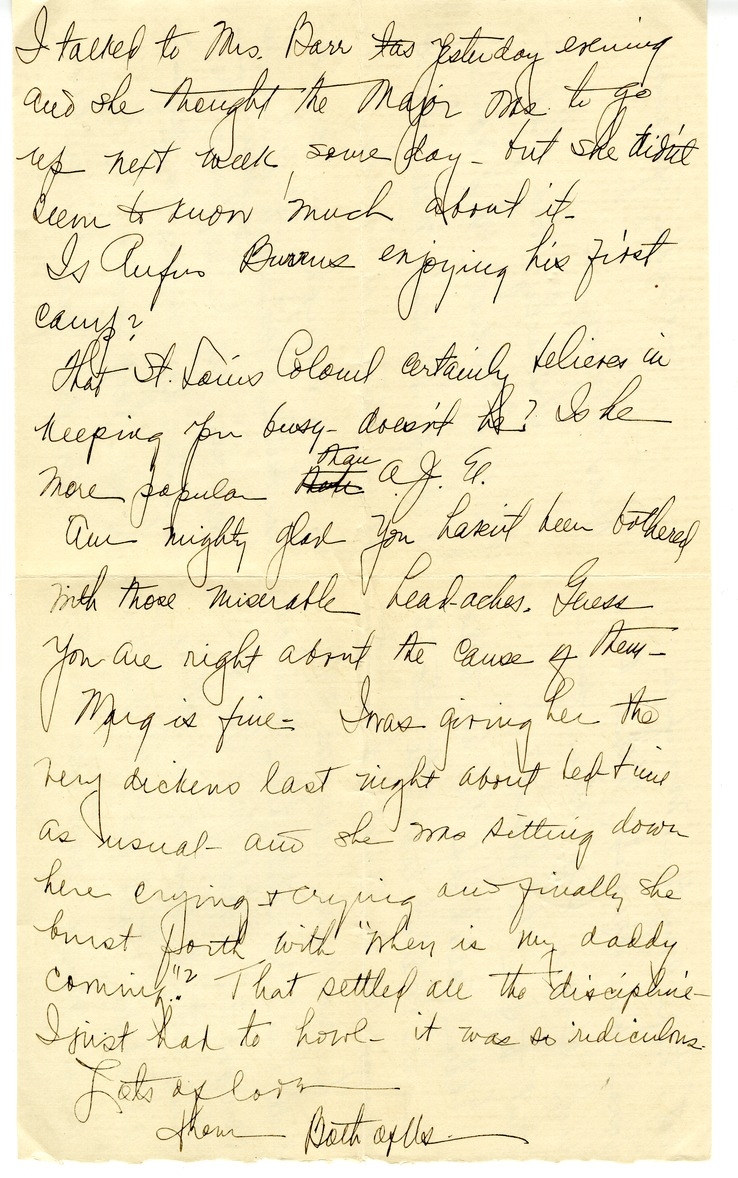 I talked to Mrs. Barr las yesterday evening
and she thought the Major was to go
up next week, some day - but she didn't
seem to know much about it -
Is Rufus Burrus enjoying his first
camp?
That St. Louis Colonel certainly believes in
keeping you busy - doesn't he? Is he
more popular than A. J. E.
Am mighty glad you haven't been bothered
with those miserable head-aches. Guess
you are right about the cause of them -
Marg is fine - I was giving her the
very dickens last night about bed-time
as usual - and she was sitting down
here crying & crying and finally she
burst forth with "when is my daddy
coming"? That settled all the discipline -
I just had to howl - it was so ridiculous.
Lots of love
from Both of Us